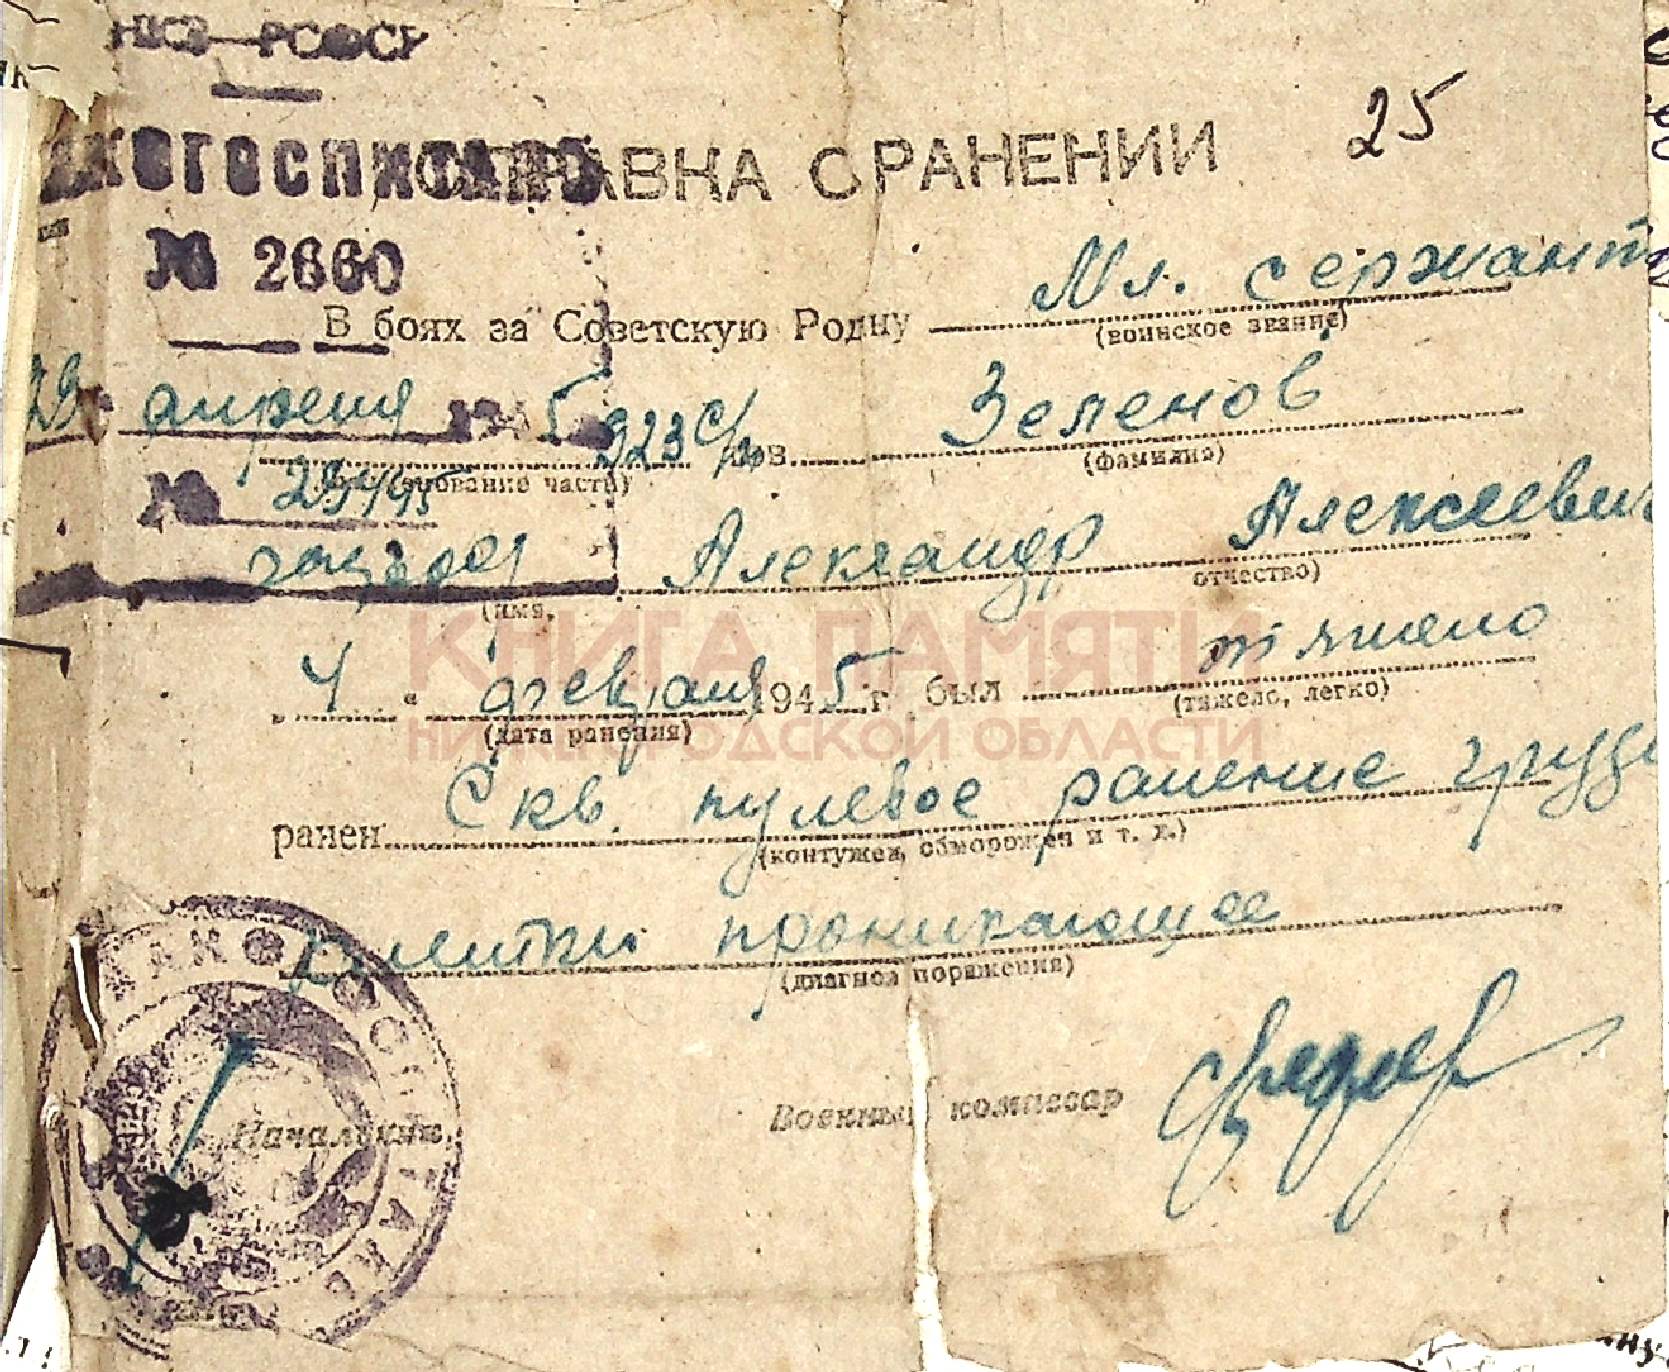 НКЗ РСФСР
25
Эвакогоспиталь
СПРАВКА О РАНЕНИИ
№ 2660
Мл. сержант
В боях за Советскую Родину
(воинское звание)
29 апреля 5 923 с/п тов. Зеленов
(наименование части) (фамилия)
№
Александр Алексеевич
(имя, отчество)
КНИГА ПАМЯТИ
НИЖЕГОРОДСКОЙ ОБЛАСТИ
4 " февраля 1945 г. был тяжело
(дата ранения) (тяжело, легко)
ранен Скв. пулевое ранение груди
(контужен, обморожен и т. д.)
клетки проникающее
(диагноз поражения)
Военный комиссар
Начальник